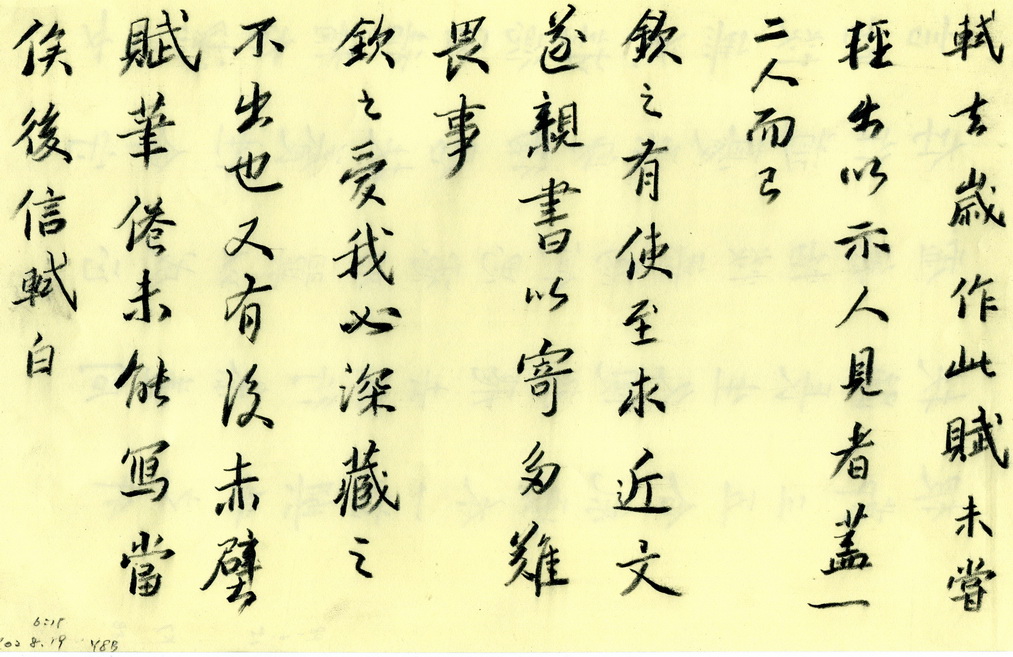 軾去歲作此賦未嘗
輕出以示人見者蓋一
二人而已
欽之有使至求近文
遂親書以寄多難
畏事
欽之愛我必深藏之
不出也又有後赤壁
賦筆倦未能寫當
俟後信軾白
6:15
102 8.19 YSB